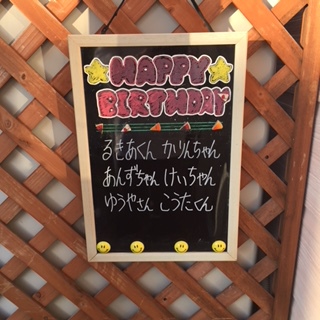 HAPPY
BIRTHDAY
るきあくん かりんちゃん
あんずちゃん けいちゃん
ゆうやさん こうたくん